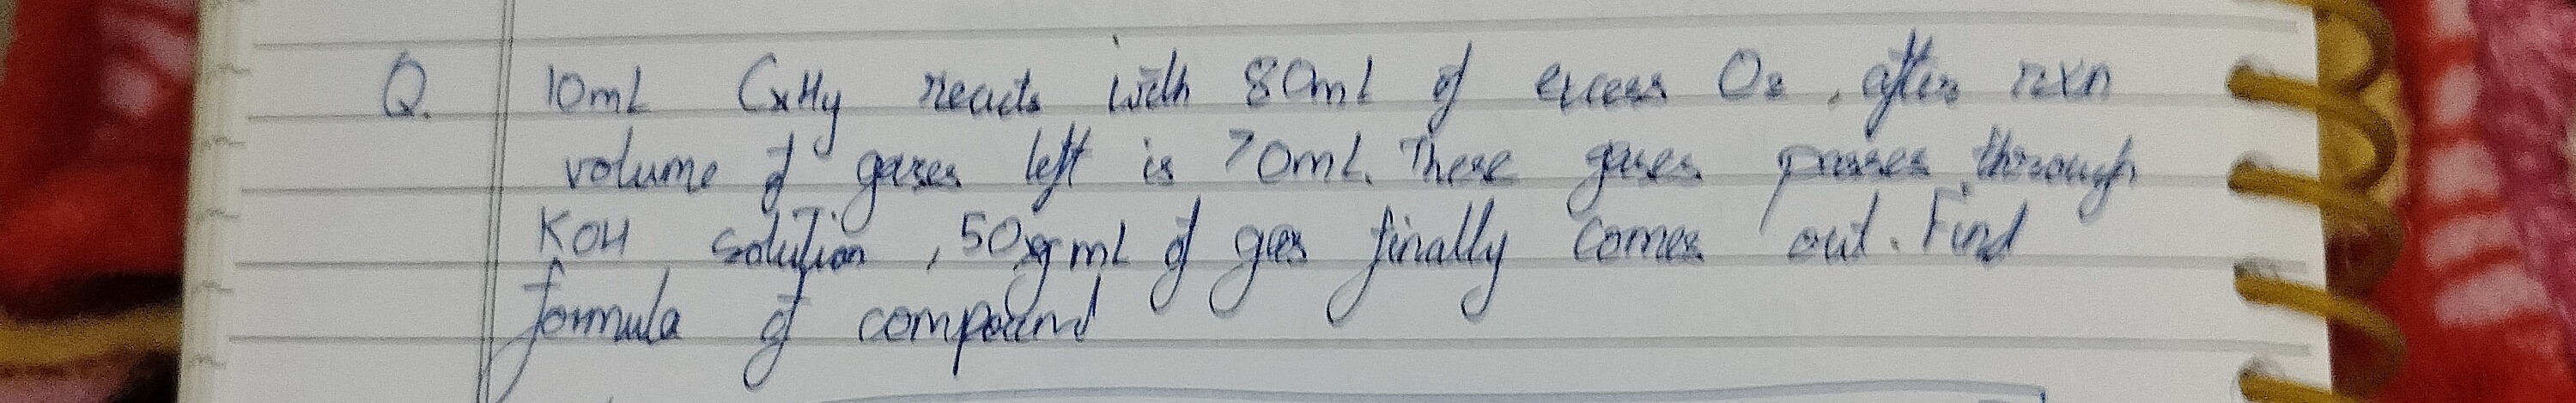 Q. 10mL CxHy reacts with 80ml of excess O2, after rxn
volume of gases left is 70ml. These gases passes through
KOH solution, 50 mL of gas finally comes out. Find
formula of compound